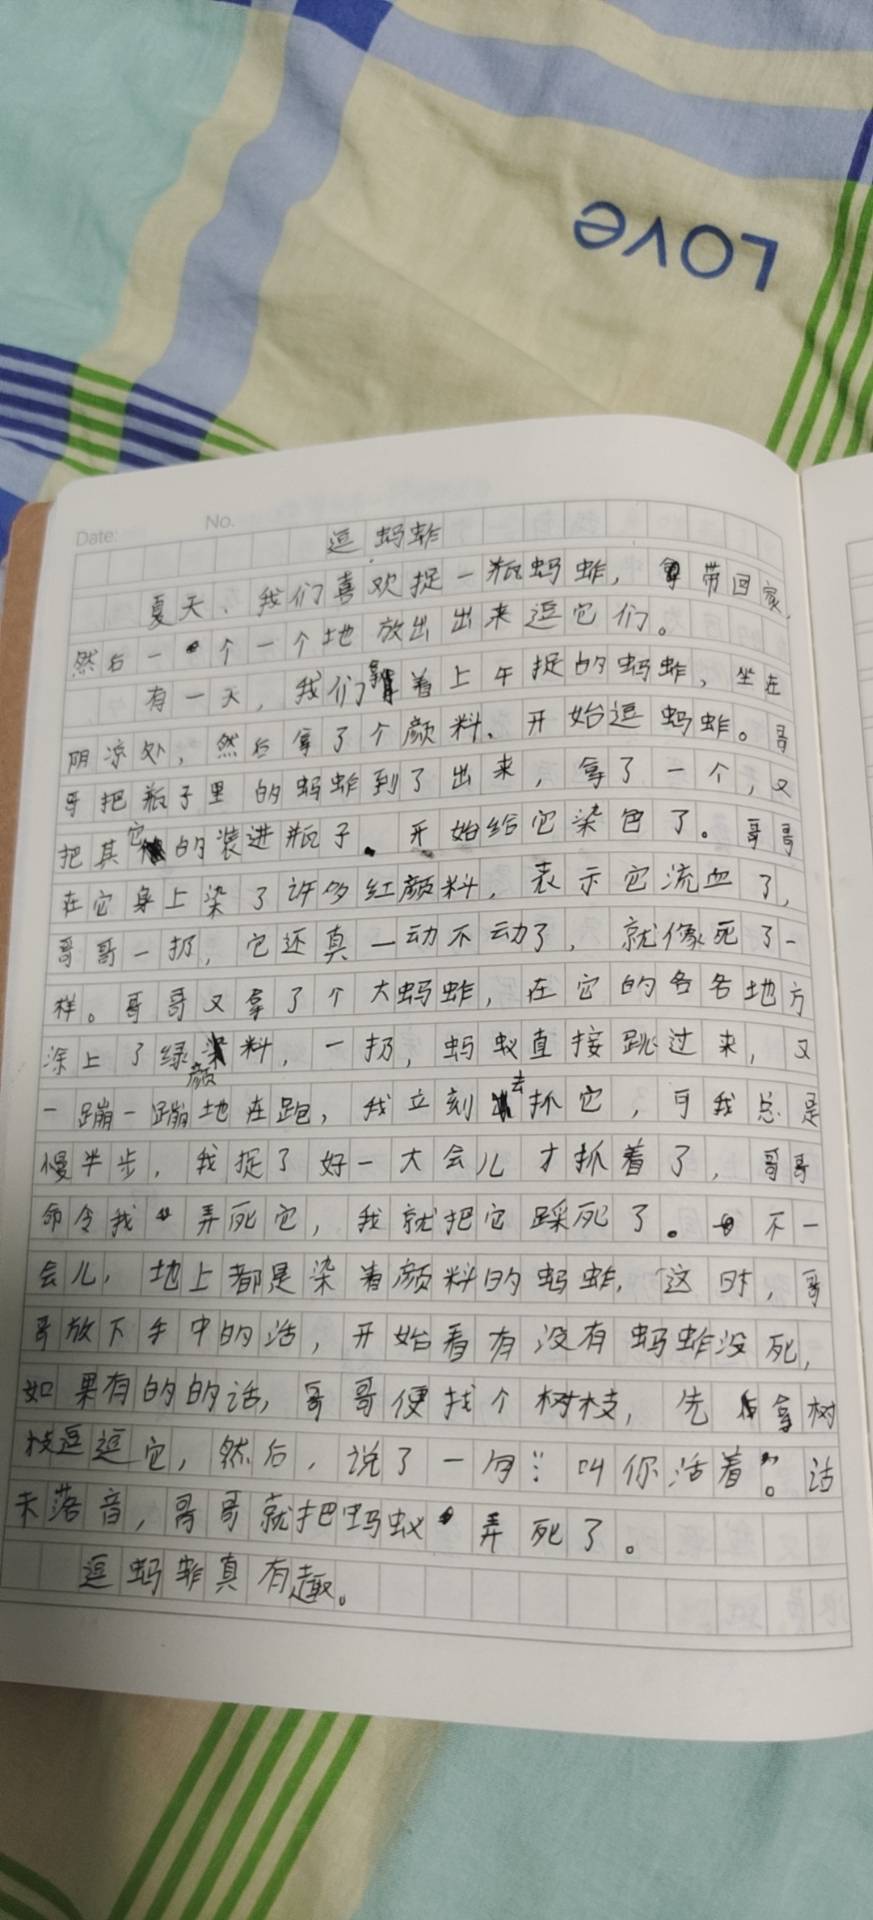 LOVE
Date:
No.
逗蚂蚱
夏天、我们喜欢捉一瓶蚂蚱，带回家，
然后一个一个地放出出来逗它们。
有一天，我们拿着上午捉的蚂蚱，坐在
阴凉处，然后拿了个颜料、开始逗蚂蚱。哥
哥把瓶子里的蚂蚱到了出来，拿了一个，又
把其它的装进瓶子。开始给它染色了。哥哥
在它身上染了许多红颜料，表示它流血了，
哥哥一扔，它还真一动不动了，就像死了一
样。哥哥又拿了个大蚂蚱，在它的各各地方
涂上了绿颜料，一扔，蚂蚁直接跳过来，又
一蹦一蹦地在跑，我立刻去抓它，可我总是
慢半步，我捉了好一大会儿才抓着了，哥哥
命令我弄死它，我就把它踩死了。不一
会儿，地上都是染着颜料的蚂蚱，这时，哥
哥放下手中的活，开始看有没有蚂蚱没死，
如果有的的话，哥哥便找个树枝，先拿树
枝逗逗它，然后，说了一句：“叫你活着”。话
未落音，哥哥就把蚂蚁弄死了。
逗蚂蚱真有趣。